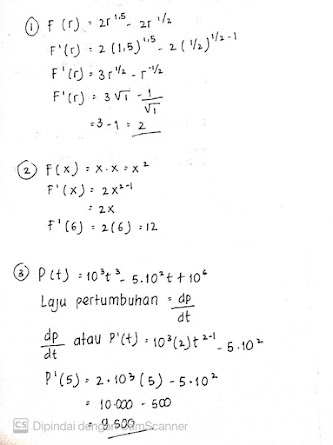 ① F (r) = 2r^1,5 - 2r^1/2
F'(r) = 2 (1,5)^1,5 - 2 (1/2)^1/2-1
F'(r) = 3r^1/2 - r^-1/2
F'(r) = 3 √1 - 1/√1
= 3 - 1 = 2
② F(x) = x . x = x^2
F'(x) = 2x^2-1
= 2x
F'(6) = 2(6) = 12
③ P(t) = 10^3t^3 - 5.10^2t + 10^6
Laju pertumbuhan = dp/dt
dp/dt atau P'(t) = 10^3(2)t^2-1 - 5.10^2
P'(5) = 2.10^3 (5) - 5.10^2
= 10.000 - 500
= 9.500
CS Dipindai dengan CamScanner